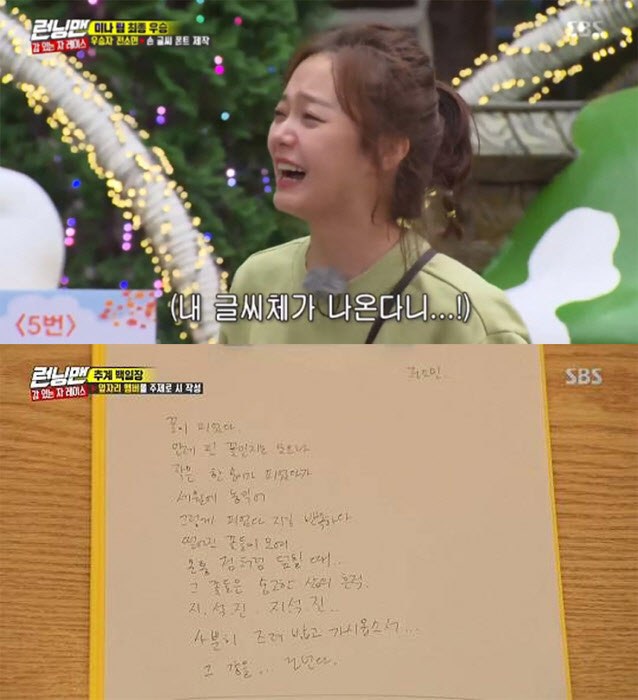 런닝맨
감 있는 자 레이스
미나 팀 최종 우승
우승자 전소민 손 글씨 폰트 제작
SBS
〈5번〉
(내 글씨체가 나온다니...!)
런닝맨
감 있는 자 레이스
추계 백일장
옆자리 멤버를 주제로 시 작성
SBS
전소민
꽃이 피었다.
언제 핀 꽃인지는 모르나
작은 한 송이가 피었다가
세월에 녹익어
그렇게 피었다 지길 반복하다
떨어진 꽃들이 모여
온통 점처럼 덮힐 때..
그 꽃들은 숭고한 삶의 흔적.
지.석.진. 지석진..
사뿐히 즈려 밟고 가시옵소서...
그 강을... 건넌다.